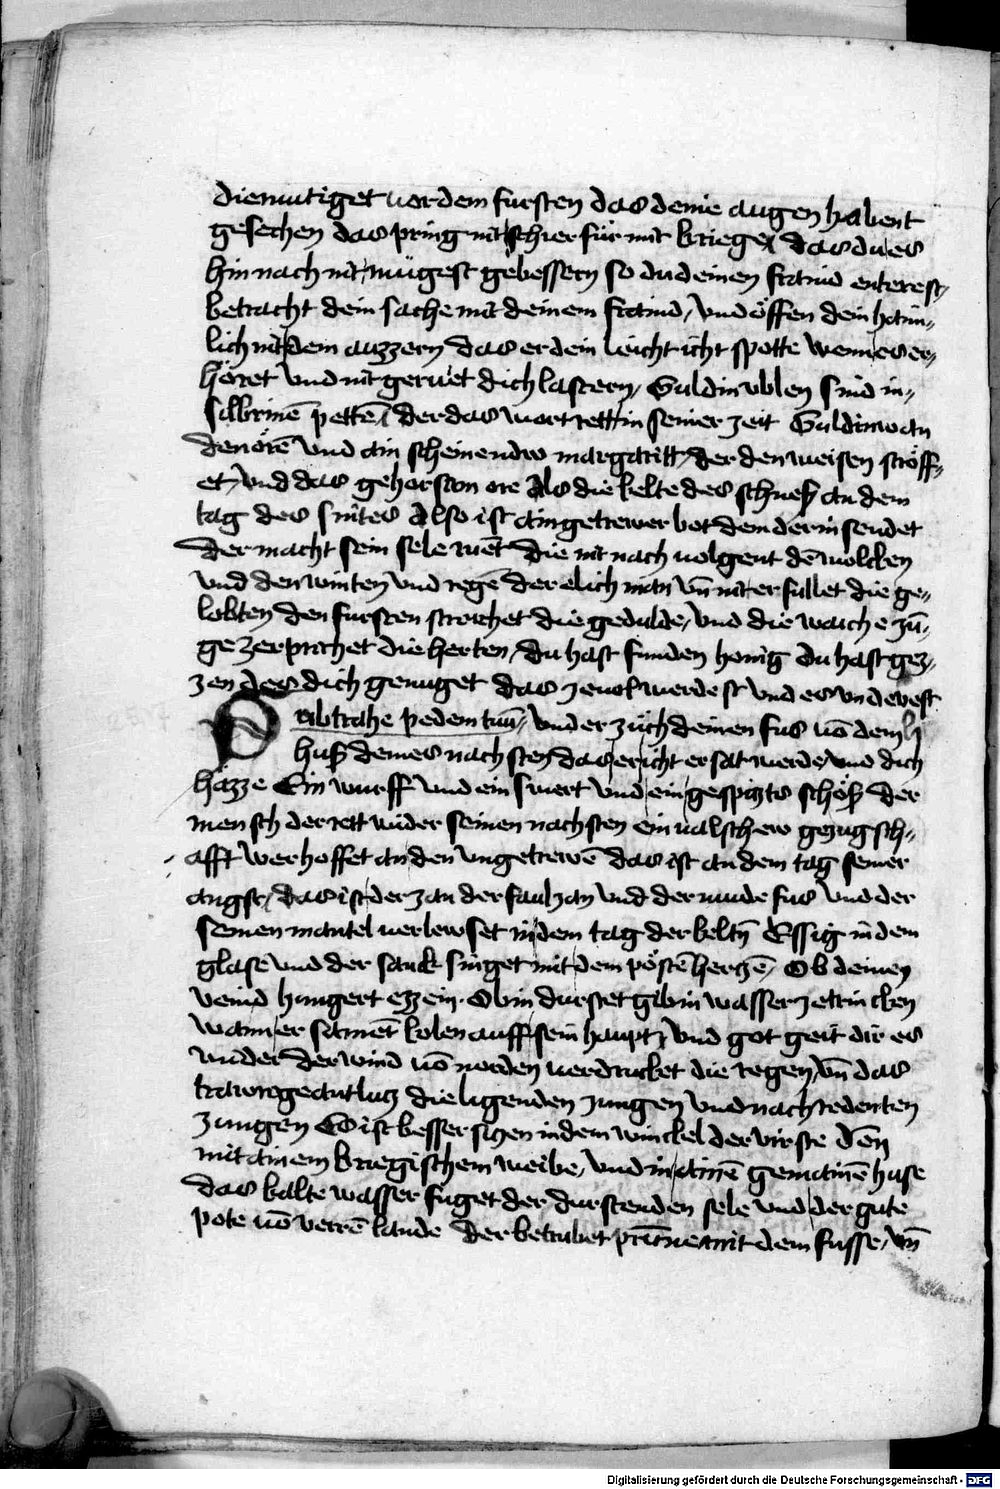 diemutiget vor dem fursten das deine augen habent
gesechen das pring nit schier für mit kriege das du es
hin nach nit mügest gebessern so du deinen fraind enterest
betracht dein sache mit deinem fraind, vnd öffen dein haim„
lich nit dem auzzern das er dein leicht icht spotte wenn es er„
höret vnd nit geruet dich lastern, Guldin vblen sind in„
silbrinē pettē der das wort rett in seiner zeit Guldin w an
den örē vnd ain scheinendw margaritt, der den weisen ströff„
et, vnd das gehorsam ore Als die kelte des schnes an dem
tag des snites Also ist ain getrewer bot dem der in sendet
der macht sein sele ruēt die nit nach uolgent dē wolcken
vnd den winten vnd regē der elich man vn̄ nit er fullet die ge„
lobten den fursten straichet die gedulde, vnd die waiche zū„
ge zerprichet die herten, du hast funden honig du hast gez„
zen des dich genuget das ze uol werdest vnd es vndewest
Subtrahe pedem tuū, vnder züch deinen fus uō dem
hus deines nachsten das er icht er sat werde vnd dich
hazze Ein wurff vnd ein swert vnd ein gespizts schös der
mensch der rett wider seinen nachsten ein ualschew gezugsch„
afft wer hoffet an den vngetrewē das ist an dem tag seiner
angst, das ist der zan der faul zan vnd der mude fus vnd der
seinen mantel uerlewset in dem tag der keltn̄ Essig in dem
glase vnd der sank singet mit dem pöstē herczē, Ob deinen
veind hungert ezz ein. Ob in durstet gib in wasser ze trincken
wann er samēt kolen auff sein haupt, vnd got geit dir es
wider der wind uō norden uerdrucket die regen, vn̄ das
trawrge antlucz die ligenden zungen vnd nachredenten
zungen Es ist besser siczen in dem winckel der virste den
mit ainem kriegischem weibe, vnd in ainē gemainē huse
das kalte wasser fuget der durstenden sele vnd der gute
pote uō verrē lande der betrubet prūne mit dem fusse, vn̄
Digitalisierung gefördert durch die Deutsche Forschungsgemeinschaft - DFG